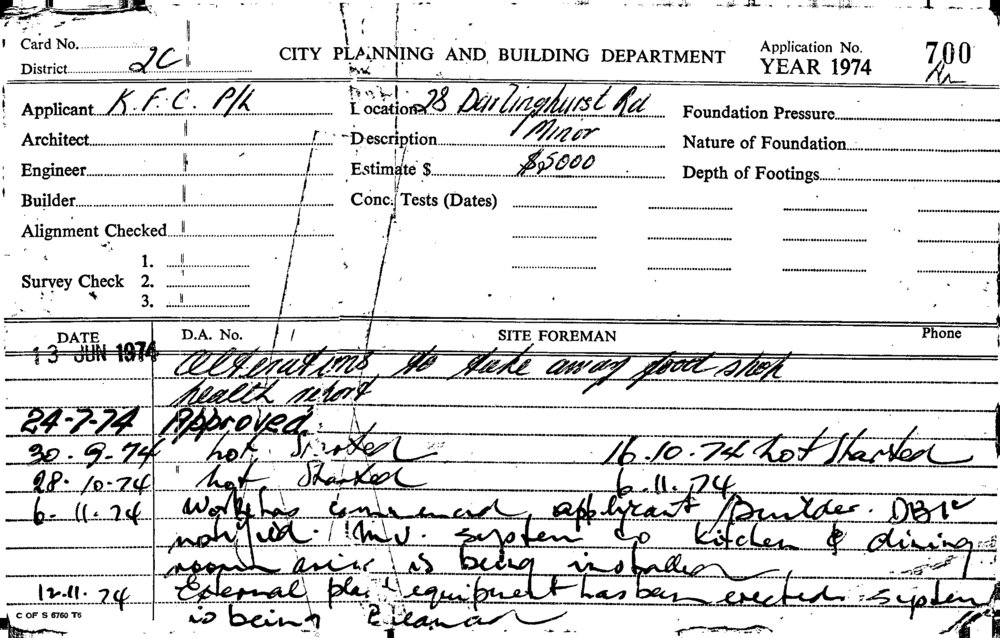 Card No.
CITY PLANNING AND BUILDING DEPARTMENT
Application No. 700
District 2C
YEAR 1974
Applicant K.F.C. P/L
Location 28 Darlinghurst Rd
Foundation Pressure
Architect
Description Minor
Nature of Foundation
Engineer
Estimate $ $5000
Depth of Footings
Builder
Conc. Tests (Dates)
Alignment Checked
1.
Survey Check 2.
3.
DATE D.A. No. SITE FOREMAN Phone
13 JUN 1974 alterations to take away food shop
health report
24-7-74 Approved
30.9.74 not started 16.10.74 not started
28.10.74 not started 6.11.74
6.11.74 Work has commenced, applicant/Builder.
notified. M.V. system to kitchen & dining
room area is being installed
12.11.74 External plant equipment has been erected system
is being
C OF S 6760 T6